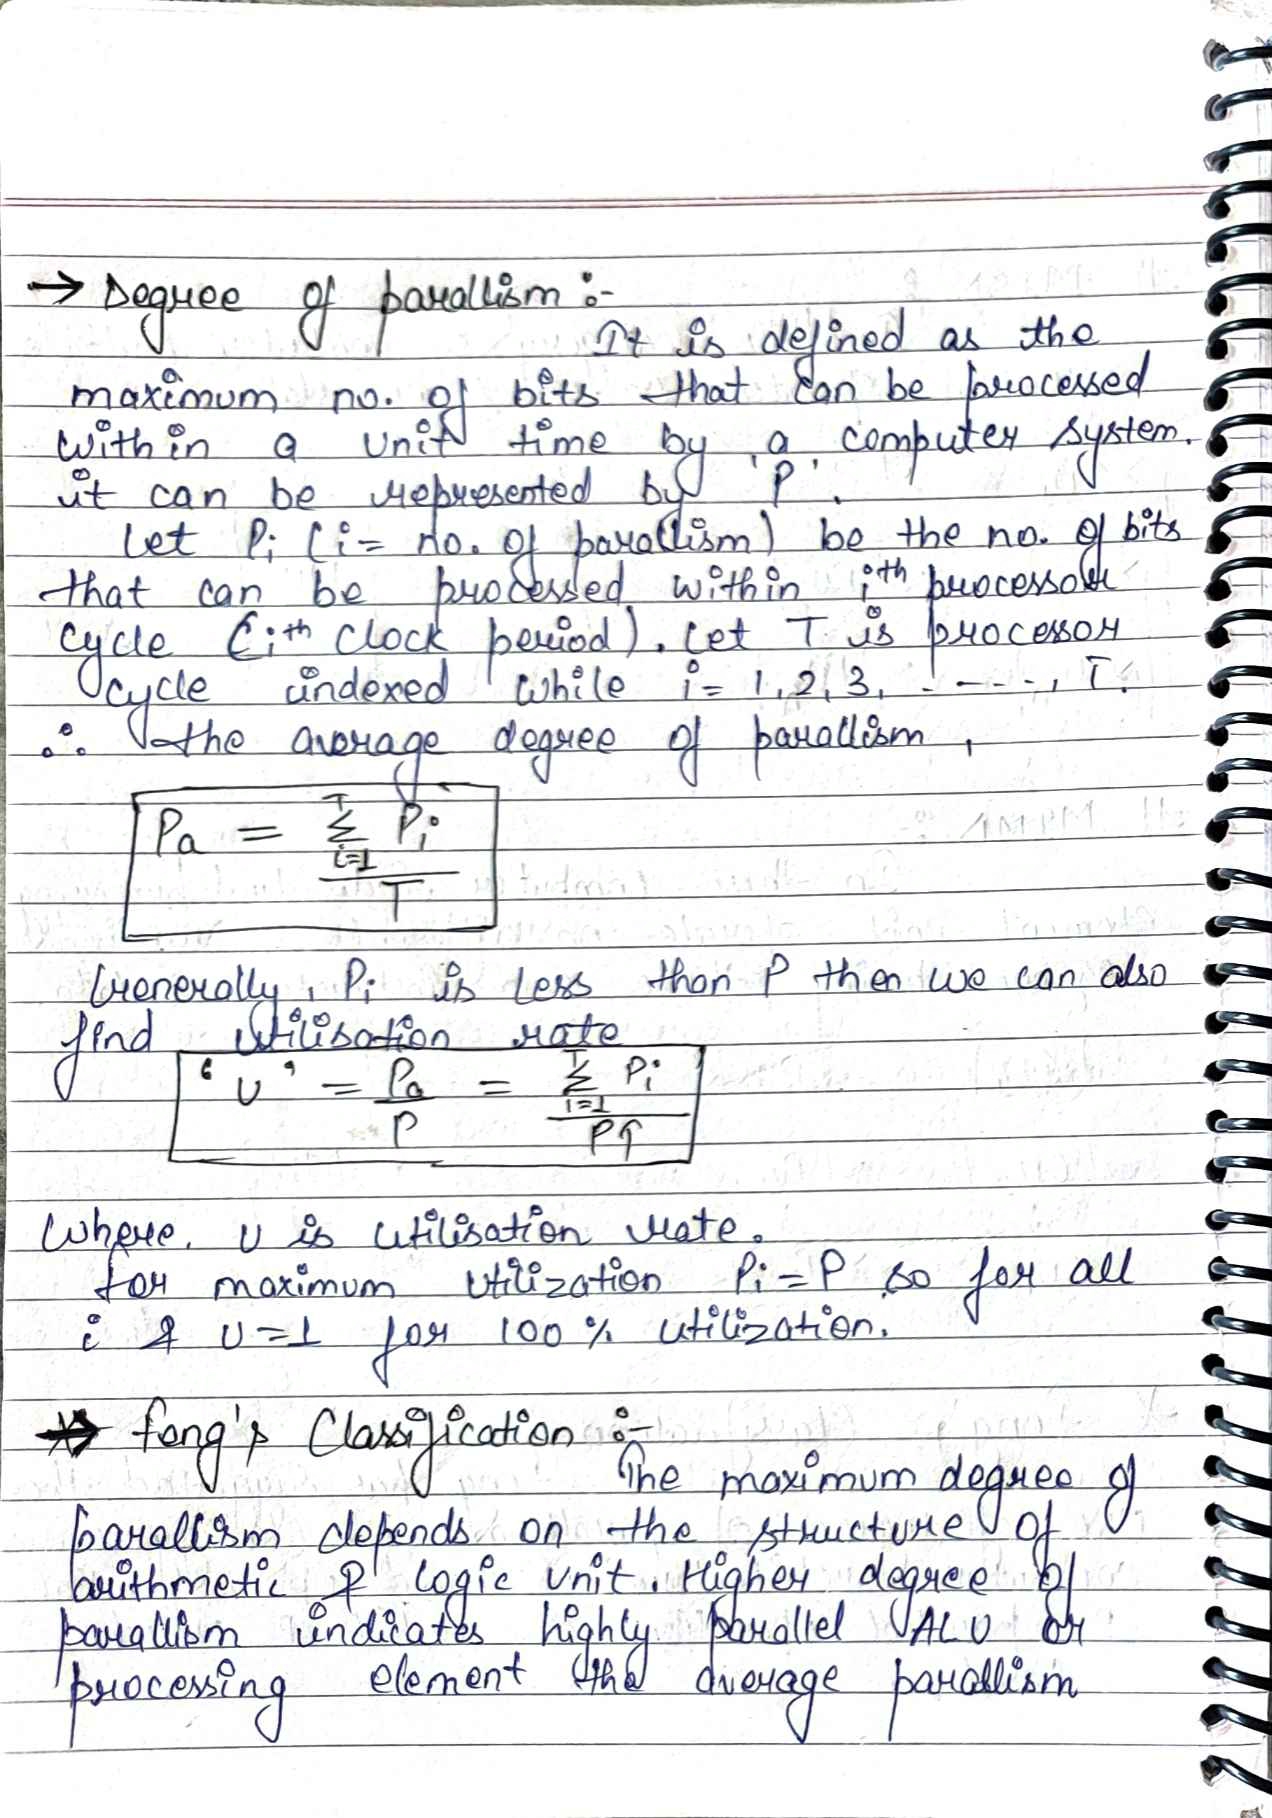 → Degree of parallism :-
It is defined as the
maximum no. of bits that can be processed
within a unit time by a computer system.
it can be represented by 'P'.
Let Pi (i = no. of parallism) be the no. of bits
that can be processed within ith processor
cycle (ith clock period). Let T is processor
cycle indexed while i = 1, 2, 3, - - - - -, T.
∴ the average degree of parallism,
Pa = T Σ i=1 Pi / T
Generally, Pi is less than P then we can also
find utilisation rate
'U' = Pa / P = T Σ i=1 Pi / PT
Where, U is utilisation rate.
for maximum utilization Pi = P so for all
i & U = 1 for 100 % utilization.
→ feng's Classification :-
The maximum degree of
parallism depends on the structure of
arithmetic & logic unit. Higher degree of
parallism indicates highly parallel ALU or
processing element the average parallism